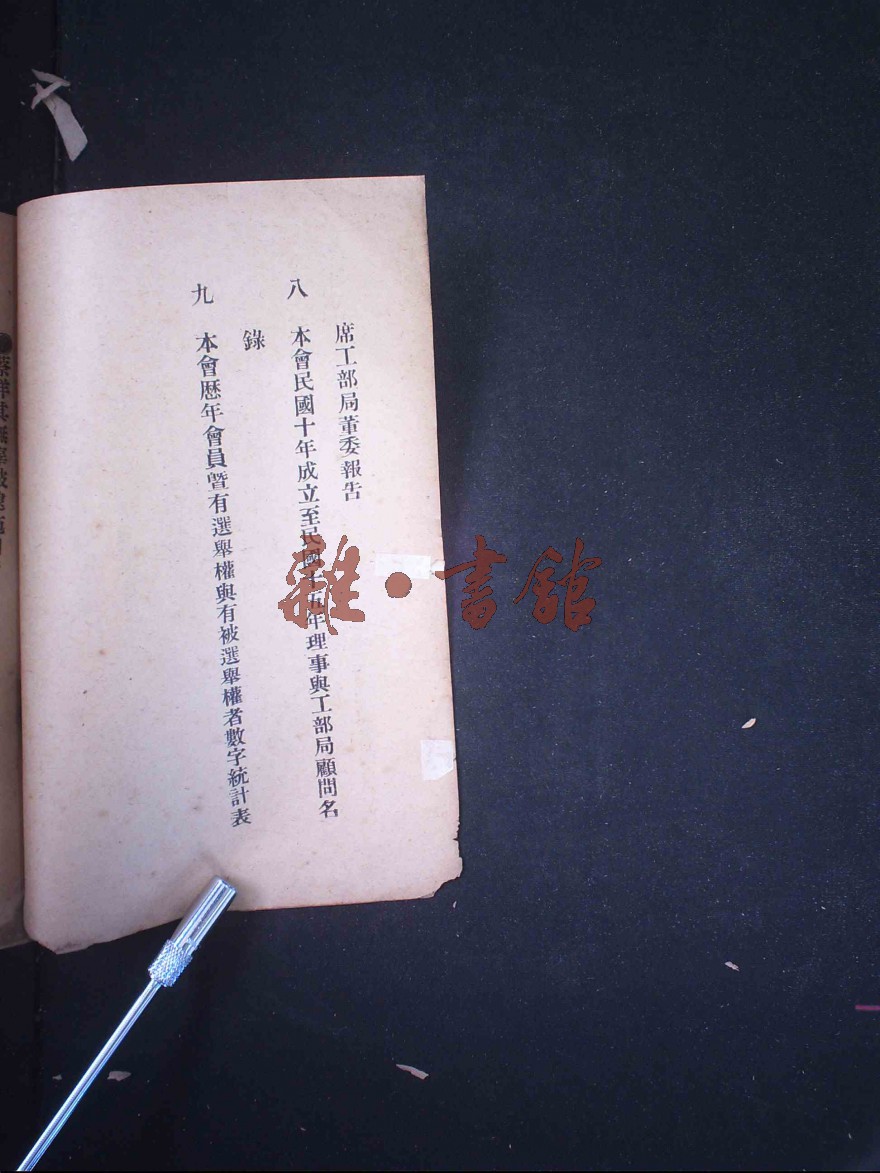 席工部局董委報告
八　本會民國十年成立至民國十五年理事與工部局顧問名
錄
九　本會歷年會員曁有選舉權與有被選舉權者數字統計表
雜·書館